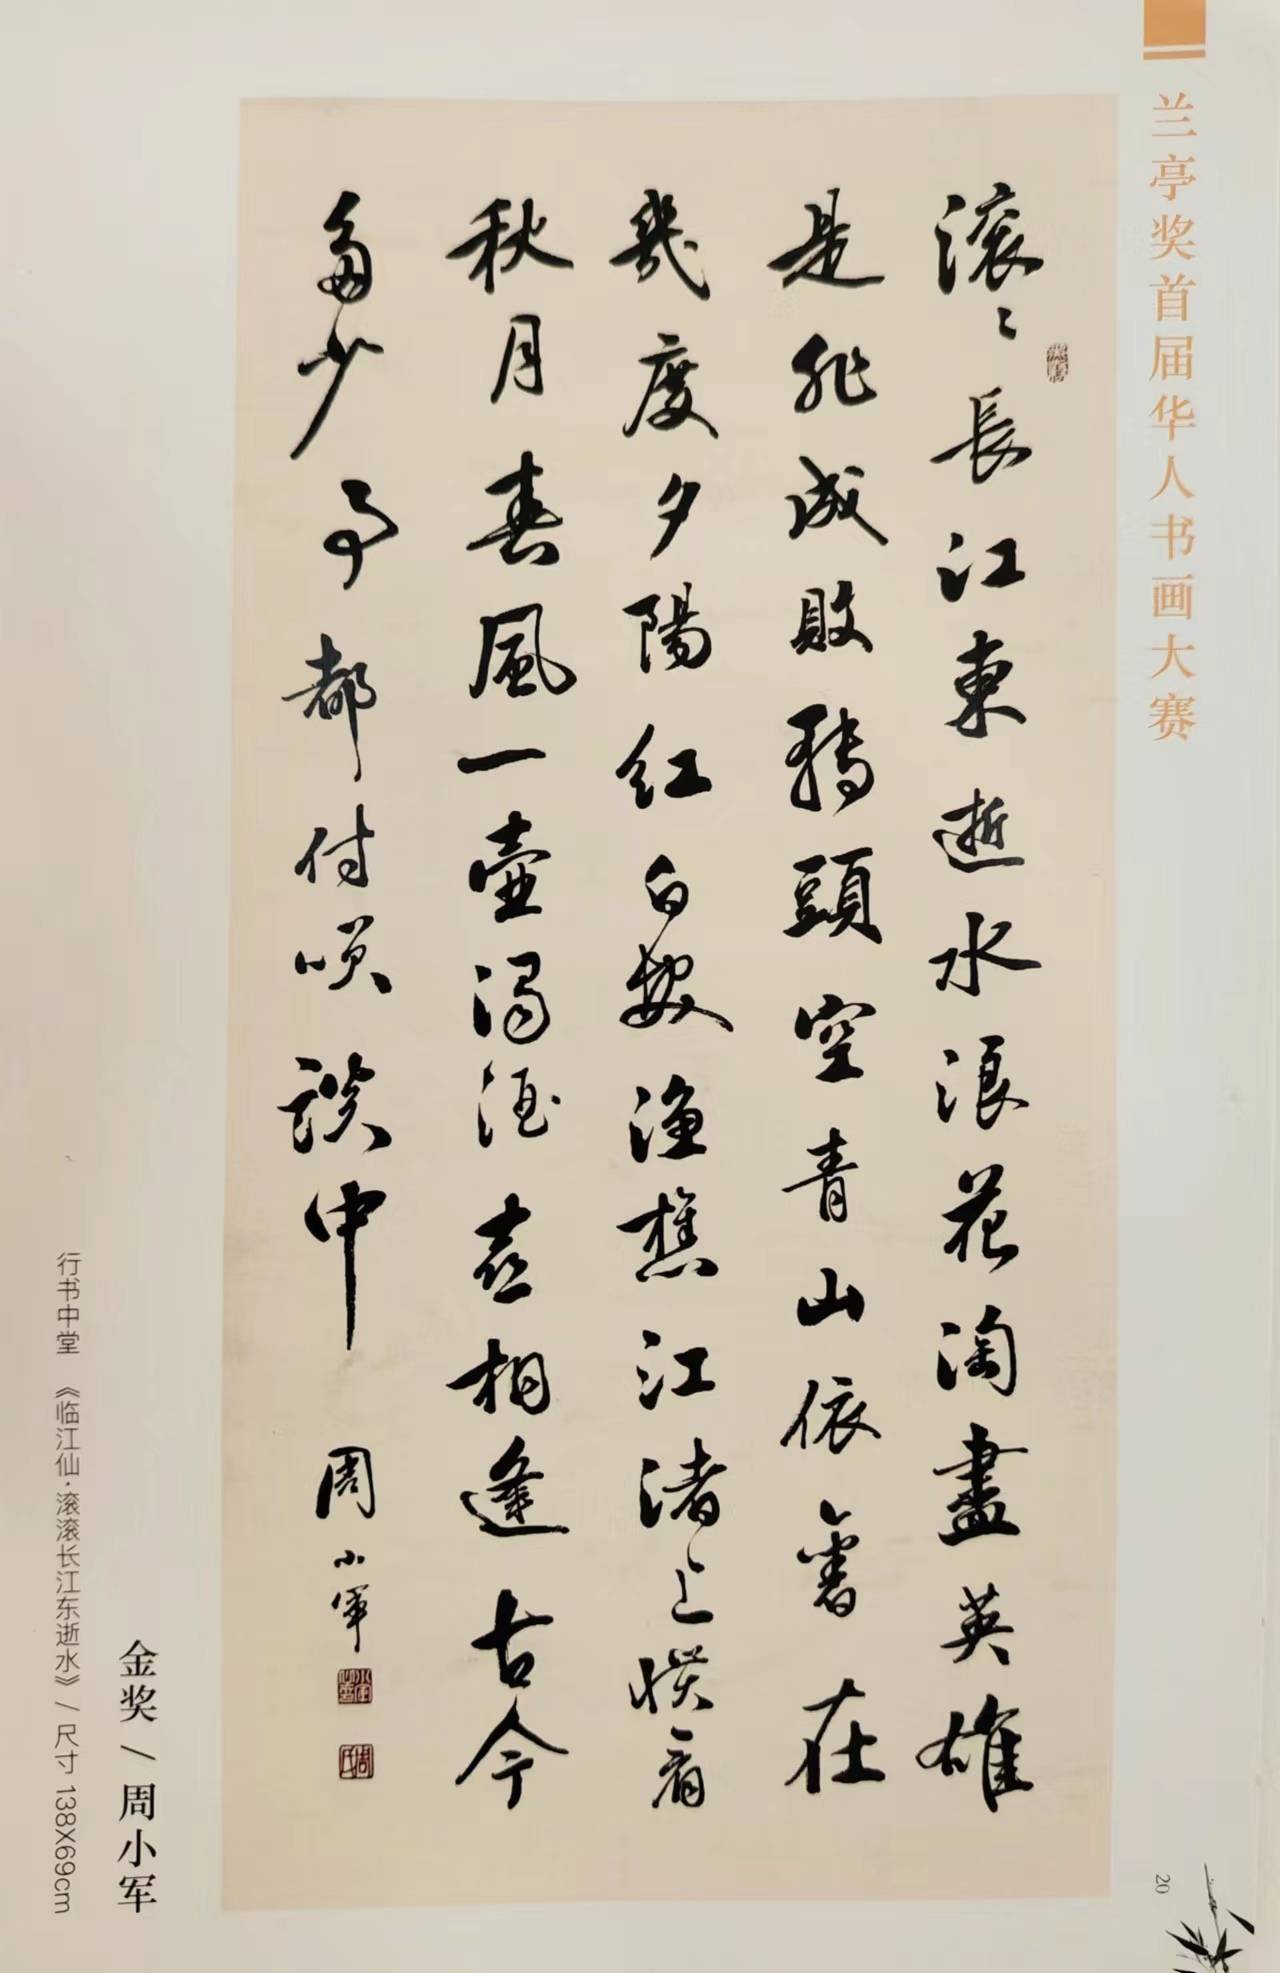 兰亭奖首届华人书画大赛
滚〻長江東逝水浪花淘盡英雄
是非成敗轉頭空青山依舊在
幾度夕陽紅白髮漁樵江渚上慣看
秋月春風一壺濁酒喜相逢古今
多少事都付笑談中
周小軍
金奖/周小军
行书中堂 《临江仙·滚滚长江东逝水》/尺寸 138X69cm
20